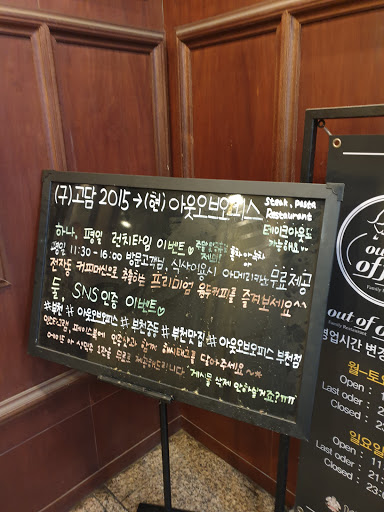 (구)고담 2015→(현) 아웃오브오피스
Steak, pasta
Restaurant
테이크아웃도
가능해요♡
하나, 평일 런치타임 이벤트♡
평일 11:30 - 16:00 방문고객님, 식사이용시 아메리카노 무료제공
전자동 커피머신으로 추출하는 프리미엄 원두커피를 즐겨보세요^^
둘, SNS 인증 이벤트♡
#부천 # 아웃오브오피스 # 부천중동 # 부천맛집 # 아웃오브오피스 부천점
인스타그램, 페이스북에 인증샷과 함께 해시태그를 달아주세요
무료로 제공해드립니다. 게시물 삭제 안하실거죠?ㅠㅠ
out of
Family
out of o
영업시간 변
월-토
Open : 11
Last oder : 21
Closed : 23
일요일
Open : 11
Last oder : 21
Closed : 23